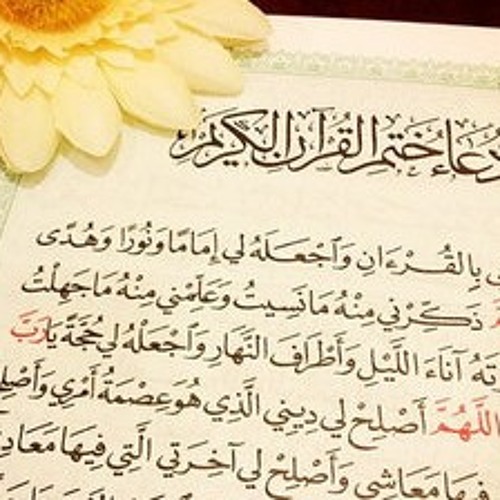 دعاء ختم القرآن الكريم
بِالْقُرْءَانِ وَٱجْعَلْهُ لِي إِمَامًا وَنُورًا وَهُدًى
ذَكِّرْنِي مِنْهُ مَا نَسِيتُ وَعَلِّمْنِي مِنْهُ مَا جَهِلْتُ
آنَاءَ اللَّيْلِ وَأَطْرَافَ النَّهَارِ وَٱجْعَلْهُ لِي حُجَّةً يَارَبَّ
اللَّهُمَّ أَصْلِحْ لِي دِينِي الَّذِي هُوَ عِصْمَةُ أَمْرِي وَأَصْلِ
مَعَاشِي وَأَصْلِحْ لِي آخِرَتِي الَّتِي فِيهَا مَعَادِ